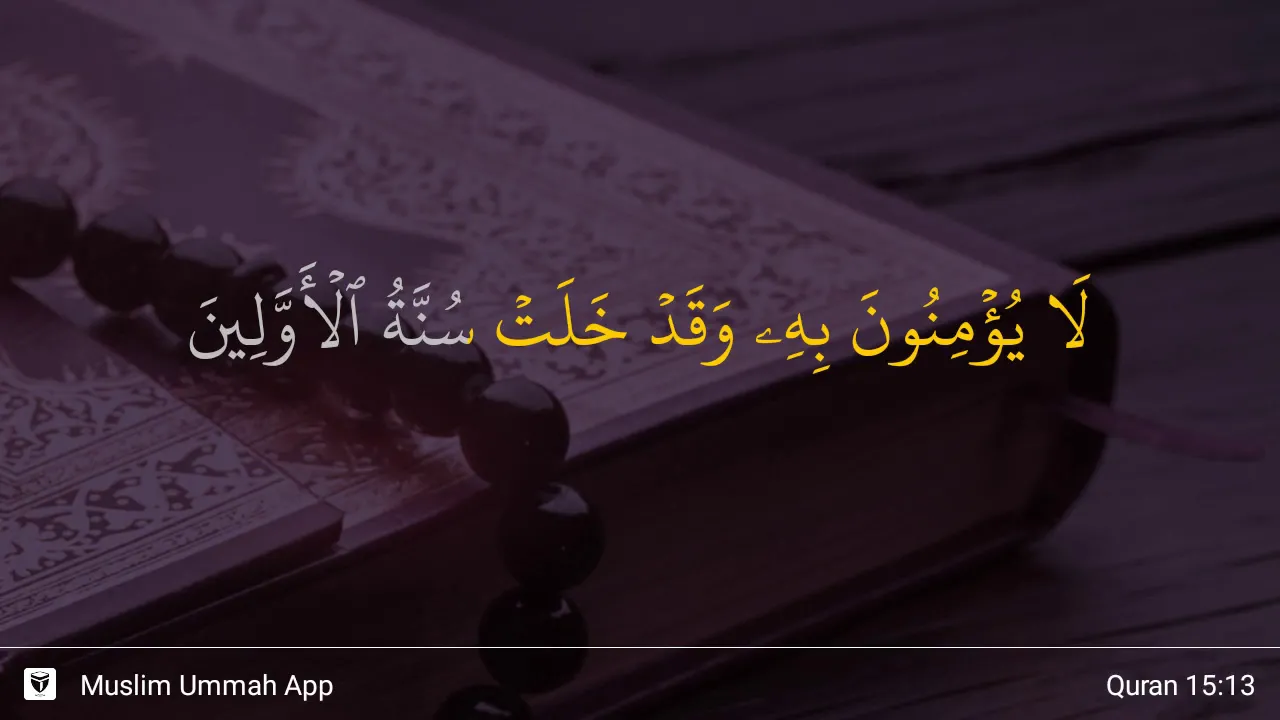 لَا يُؤْمِنُونَ بِهِۦ وَقَدْ خَلَتْ سُنَّةُ ٱلْأَوَّلِينَ
Muslim Ummah App
Quran 15:13